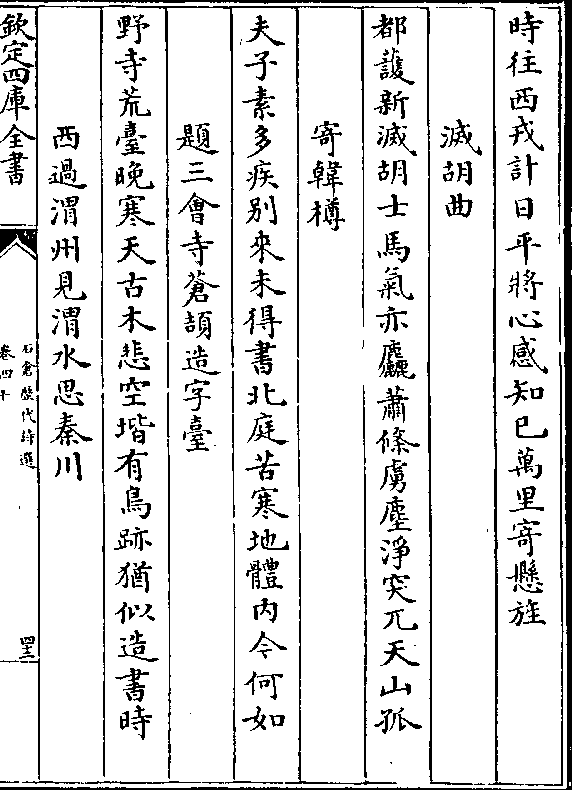 時往西戎計日平將心感知己萬里寄懸旌
滅胡曲
都護新滅胡士馬氣亦麤蕭條虜塵淨突兀天山孤
寄韓樽
夫子素多疾别來未得書北庭苦寒地體内今何如
題三會寺蒼頡造字臺
野寺荒臺晚寒天古木悲空堦有鳥跡猶似造書時
西過渭州見渭水思秦川
欽定四庫全書
石倉歴代詩選
卷四十
四三